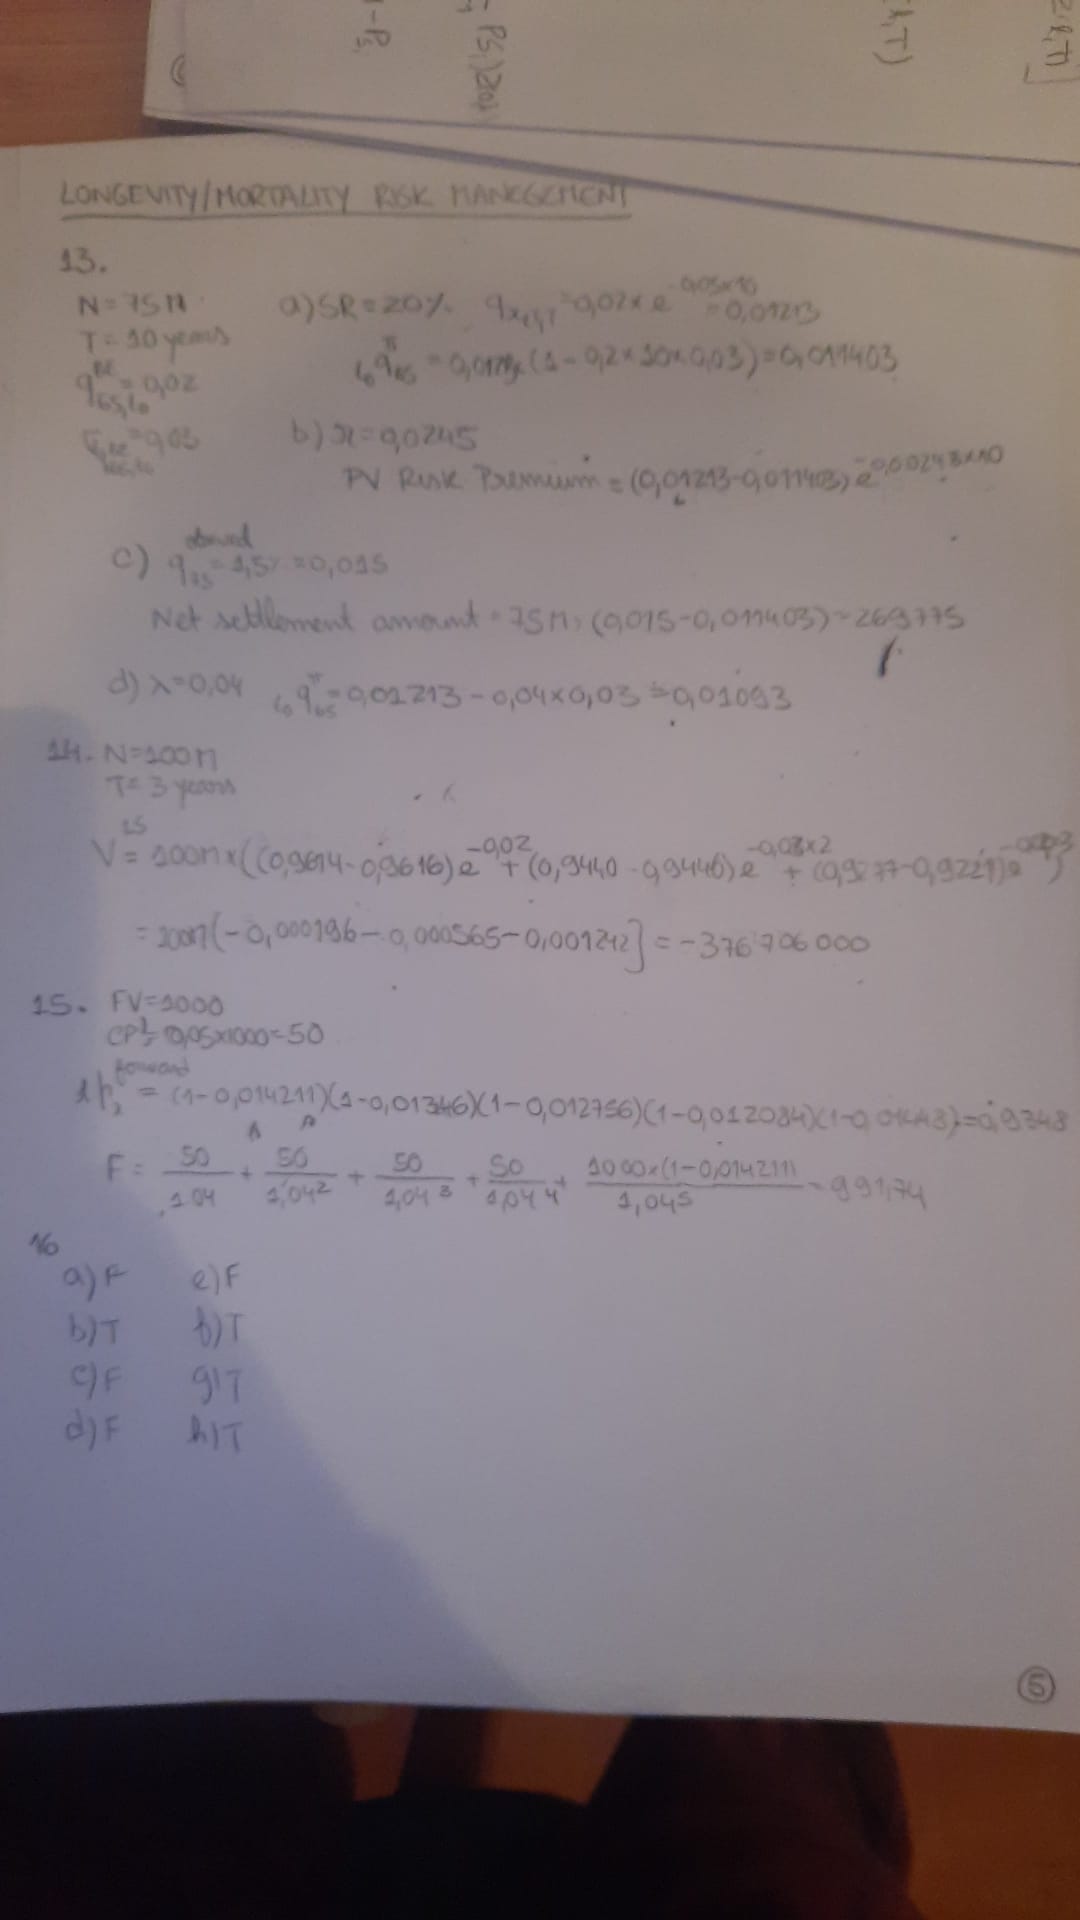 1-PS,
PS,)20,1
k,T)
LONGEVITY/MORTALITY RISK MANEGEMENT
13.
N=75M
T=10 years
q^BE_65,t0 = 0,02
= 0,03
a) SR=20% q_x+t,T = 0,02 x e^-0,05x10 = 0,01213
t0 q^π_65 = (1-0,2x10x0,03)=0,011403
b) r=0,0245
PV Risk Premium = (0,01213-0,011403) e^-0,00248x10
c) q^observed_75 = 1,5% = 0,015
Net settlement amount = 75M x (0,015-0,011403) = 269775
d) λ=0,04 t0 q^π_65 = 0,01213 - 0,04x0,03 = 0,01093
14. N=100M
T= 3 years
V^LS = 100M x ((0,9614-0,9616)e^-0,02 + (0,9440-0,9446)e^-0,03x2 + (0,9277-0,9221)e
= 100M [-0,000196-0,000565-0,001242] = -376 706 000
15. FV=1000
CP = 0,05x1000=50
forward = (1-0,014211)(1-0,01346)(1-0,012756)(1-0,012084)(1-0,01448)=0,9348
F = 50/1.04 + 50/1,04² + 50/1,04³ + 50/1,04⁴ + 1000x(1-0,014211)/1,045 = 991,74
16
a) F e) F
b) T f) T
c) F g) T
d) F h) T
5